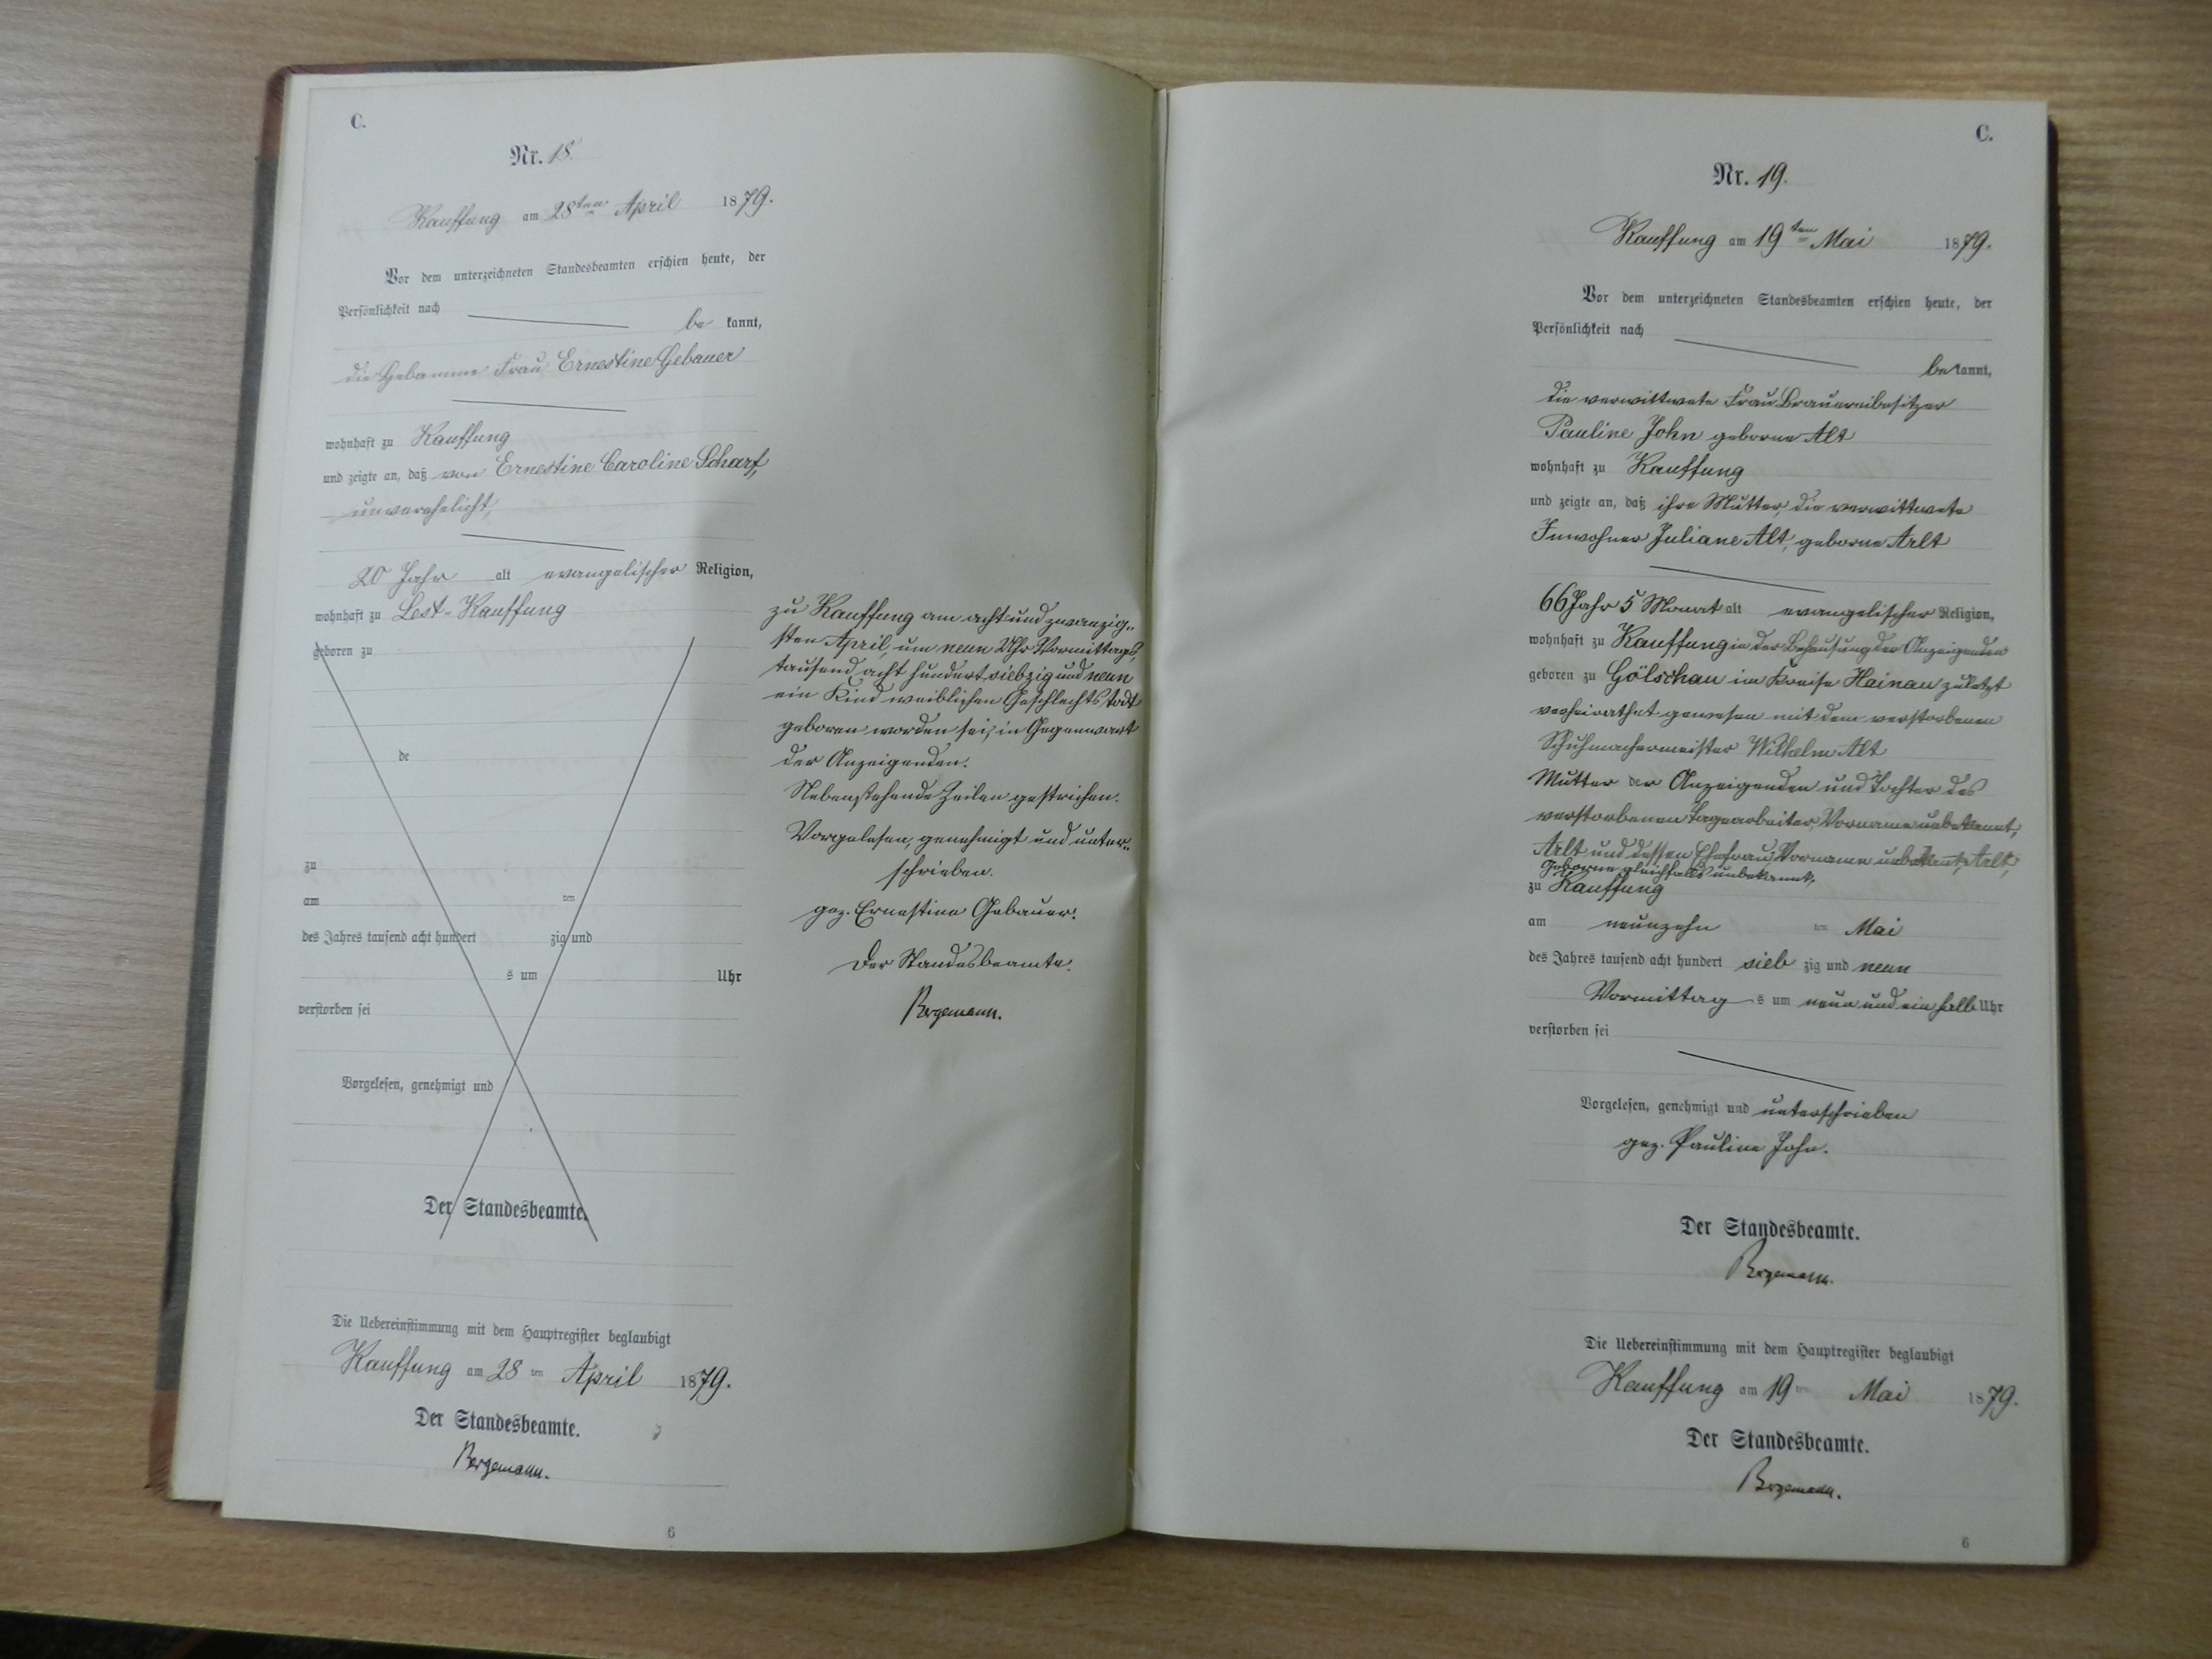 C.
Nr. 18.
Kauffung am 28ten April 1879.
Vor dem unterzeichneten Standesbeamten erschien heute, der
Persönlichkeit nach
be kannt,
die Hebamme Frau Ernestine Gebauer
wohnhaft zu Kauffung
und zeigte an, daß von Ernestine Caroline Scharf,
unverehelicht,
20 Jahr alt evangelischer Religion,
wohnhaft zu Lest-Kauffung
geboren zu
de
zu
am ten
des Jahres tausend acht hundert zig und
s um Uhr
verstorben sei
Vorgelesen, genehmigt und
Der Standesbeamte.
zu Kauffung am acht und zwanzig„
sten April, um neun Uhr Vormittags,
tausend acht hundert siebzig und neun
ein Kind weiblichen Geschlechts todt
geboren worden sei, in Gegenwart
der Anzeigenden.
Nebenstehende Zeilen gestrichen.
Vorgelesen, genehmigt und unter„
schrieben.
gez. Ernestine Gebauer.
Der Standesbeamte.
Bergemann.
Die Uebereinstimmung mit dem Hauptregister beglaubigt
Kauffung am 28 ten April 1879.
Der Standesbeamte.
Bergemann.
6
C.
Nr. 19.
Kauffung am 19ten Mai 1879.
Vor dem unterzeichneten Standesbeamten erschien heute, der
Persönlichkeit nach
be kannt,
die verwittwete Frau Brauereibesitzer
Pauline John geborne Alt
wohnhaft zu Kauffung
und zeigte an, daß ihre Mutter, die verwittwete
Inwohner Juliane Alt, geborne Arlt
66 Jahr 5 Monat alt evangelischer Religion,
wohnhaft zu Kauffung in der Behausung der Anzeigenden
geboren zu Gölschau im Kreise Hainau zuletzt
verheirathet gewesen mit dem verstorbenen
Schuhmachermeister Wilhelm Alt
Mutter der Anzeigenden und Tochter des
verstorbenen Tagearbeiter, Vorname unbekannt,
Arlt und dessen Ehefrau, Vorname unbekannt, Arlt,
Geborne gleichfalls unbekannt,
zu Kauffung
am neunzehn ten Mai
des Jahres tausend acht hundert sieb zig und neun
Vormittag s um neun und ein halb Uhr
verstorben sei
Vorgelesen, genehmigt und unterschrieben
gez. Pauline John.
Der Standesbeamte.
Bergemann.
Die Uebereinstimmung mit dem Hauptregister beglaubigt
Kauffung am 19 ten Mai 1879.
Der Standesbeamte.
Bergemann.
6